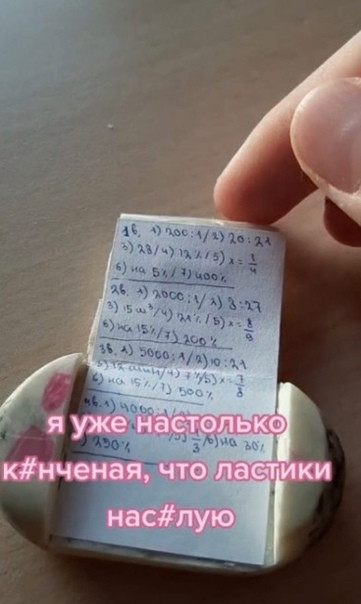 1в. 1) 200:1/2) 20:21
3) 28/4) 12%/5) x=1/4
6) на 5%/7) 400%
2в. 1) 2000:1/2) 3:27
3) 15 см³/4) 21%/5) x=8/9
6) на 15%/7) 200%
3в. 1) 5000:1/2) 10:21
5) x=7/8
6) на 15%/7) 500%
4в. 1) 4000:1/2)
/6) на 30%
) 250%
я уже настолько
к#нченая, что ластики
нас#лую